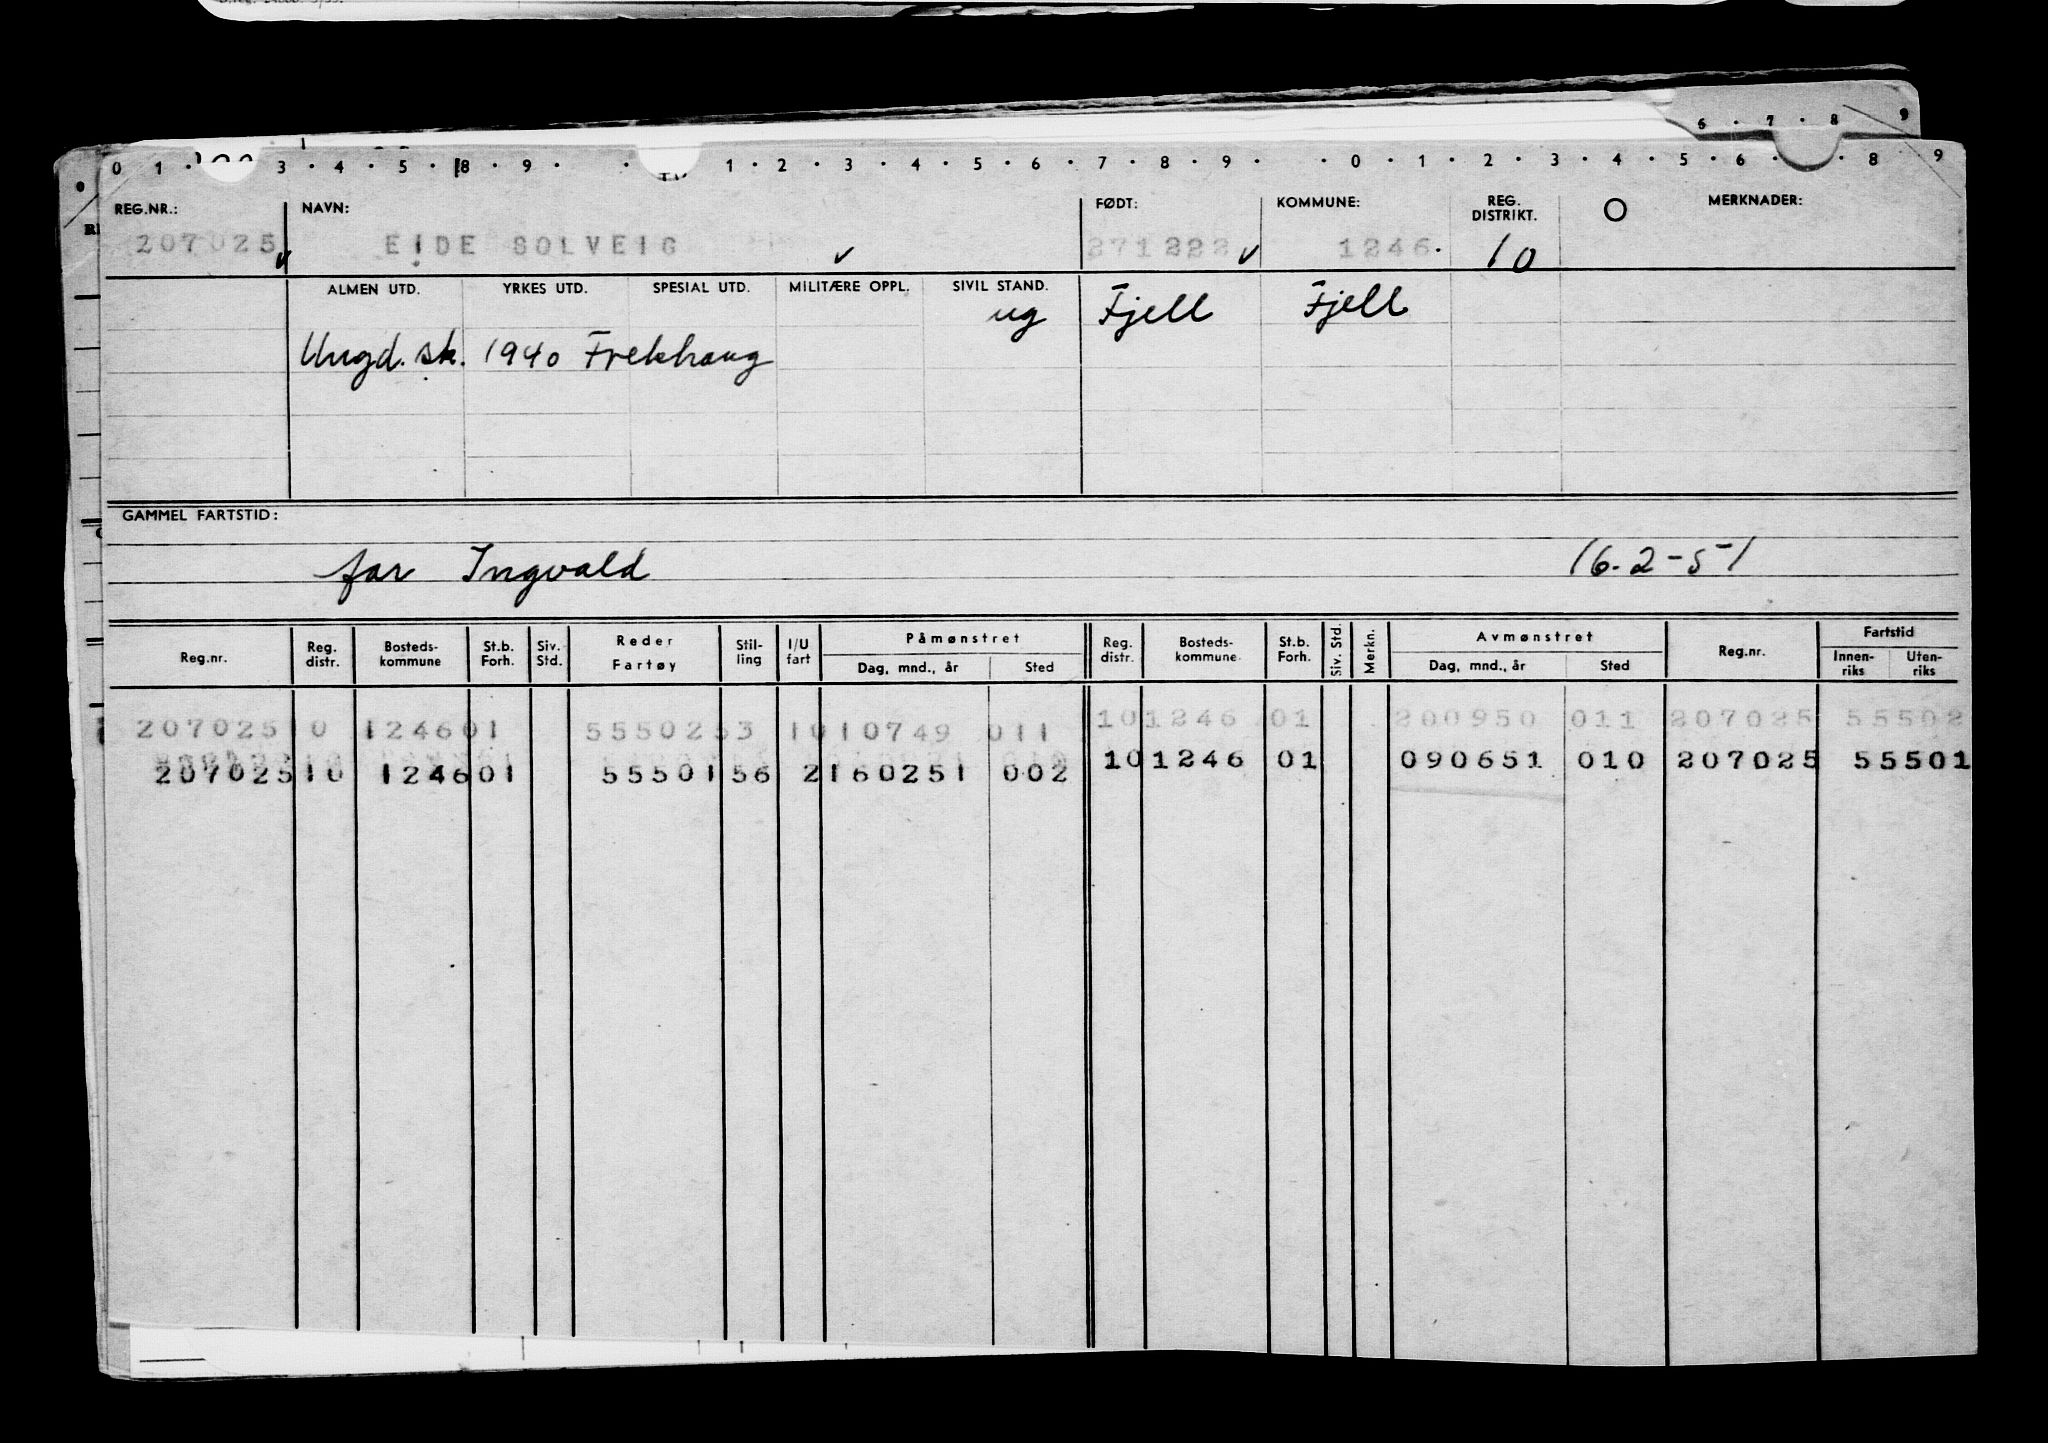 0 1 · 3 · 4 · 5 · 8 · 9 · · 1 · 2 · 3 · 4 · 5 · 6 · 7 · 8 · 9 · · 0 · 1 · 2 · 3 · 4 · 5 · 6 · · 8 · 9
6 · 7 · 8 · 9
REG.NR.: NAVN: FØDT: KOMMUNE: REG. DISTRIKT. O MERKNADER:
207025 EIDE SOLVEIG 271222 1246 10
ALMEN UTD. YRKES UTD. SPESIAL UTD. MILITÆRE OPPL. SIVIL STAND.
ug Fjell Fjell
Ungd. sk. 1940 Frekhaug
GAMMEL FARTSTID:
far Ingvald 16.2-51
Reg.nr. Reg. distr. Bosteds-kommune St.b. Forh. Siv. Std. Reder Fartøy Stil-ling I/U fart Påmønstret Dag, mnd., år Sted Reg. distr. Bosteds-kommune St.b. Forh. Siv. Std. Merkn. Avmønstret Dag, mnd., år Sted Reg.nr. Fartstid Innen-riks Uten-riks
207025 10 1246 01 55502 53 1 010749 011 10 1246 01 200950 011 207025 55502
207025 10 1246 01 55501 56 2 160251 002 10 1246 01 090651 010 207025 55501